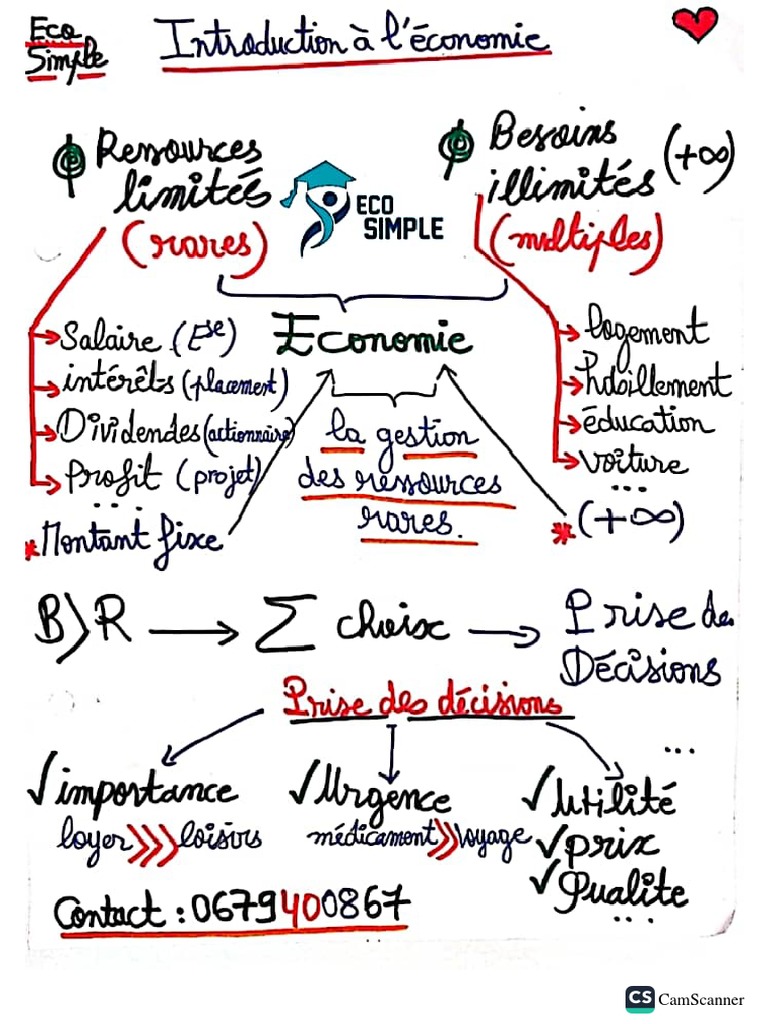 Eco
Simple
Introduction à l'économie
Ressources
limités
(rares)
ECO
SIMPLE
Besoins
illimités (+∞)
(multiples)
Salaire (Ese)
intérêts (placement)
Dividendes (actionnaire)
Profit (projet)
...
*Montant fixe
Economie
la gestion
des ressources
rares.
logement
éducation
voiture
...
* (+∞)
B>R → Σ choix → Prise des
Décisions
Prise des décisions
...
√importance
loyer >>> loisirs
√Urgence
médicament >> voyage
√Utilité
√prix
√Qualite
...
Contact : 0679400867
CS CamScanner